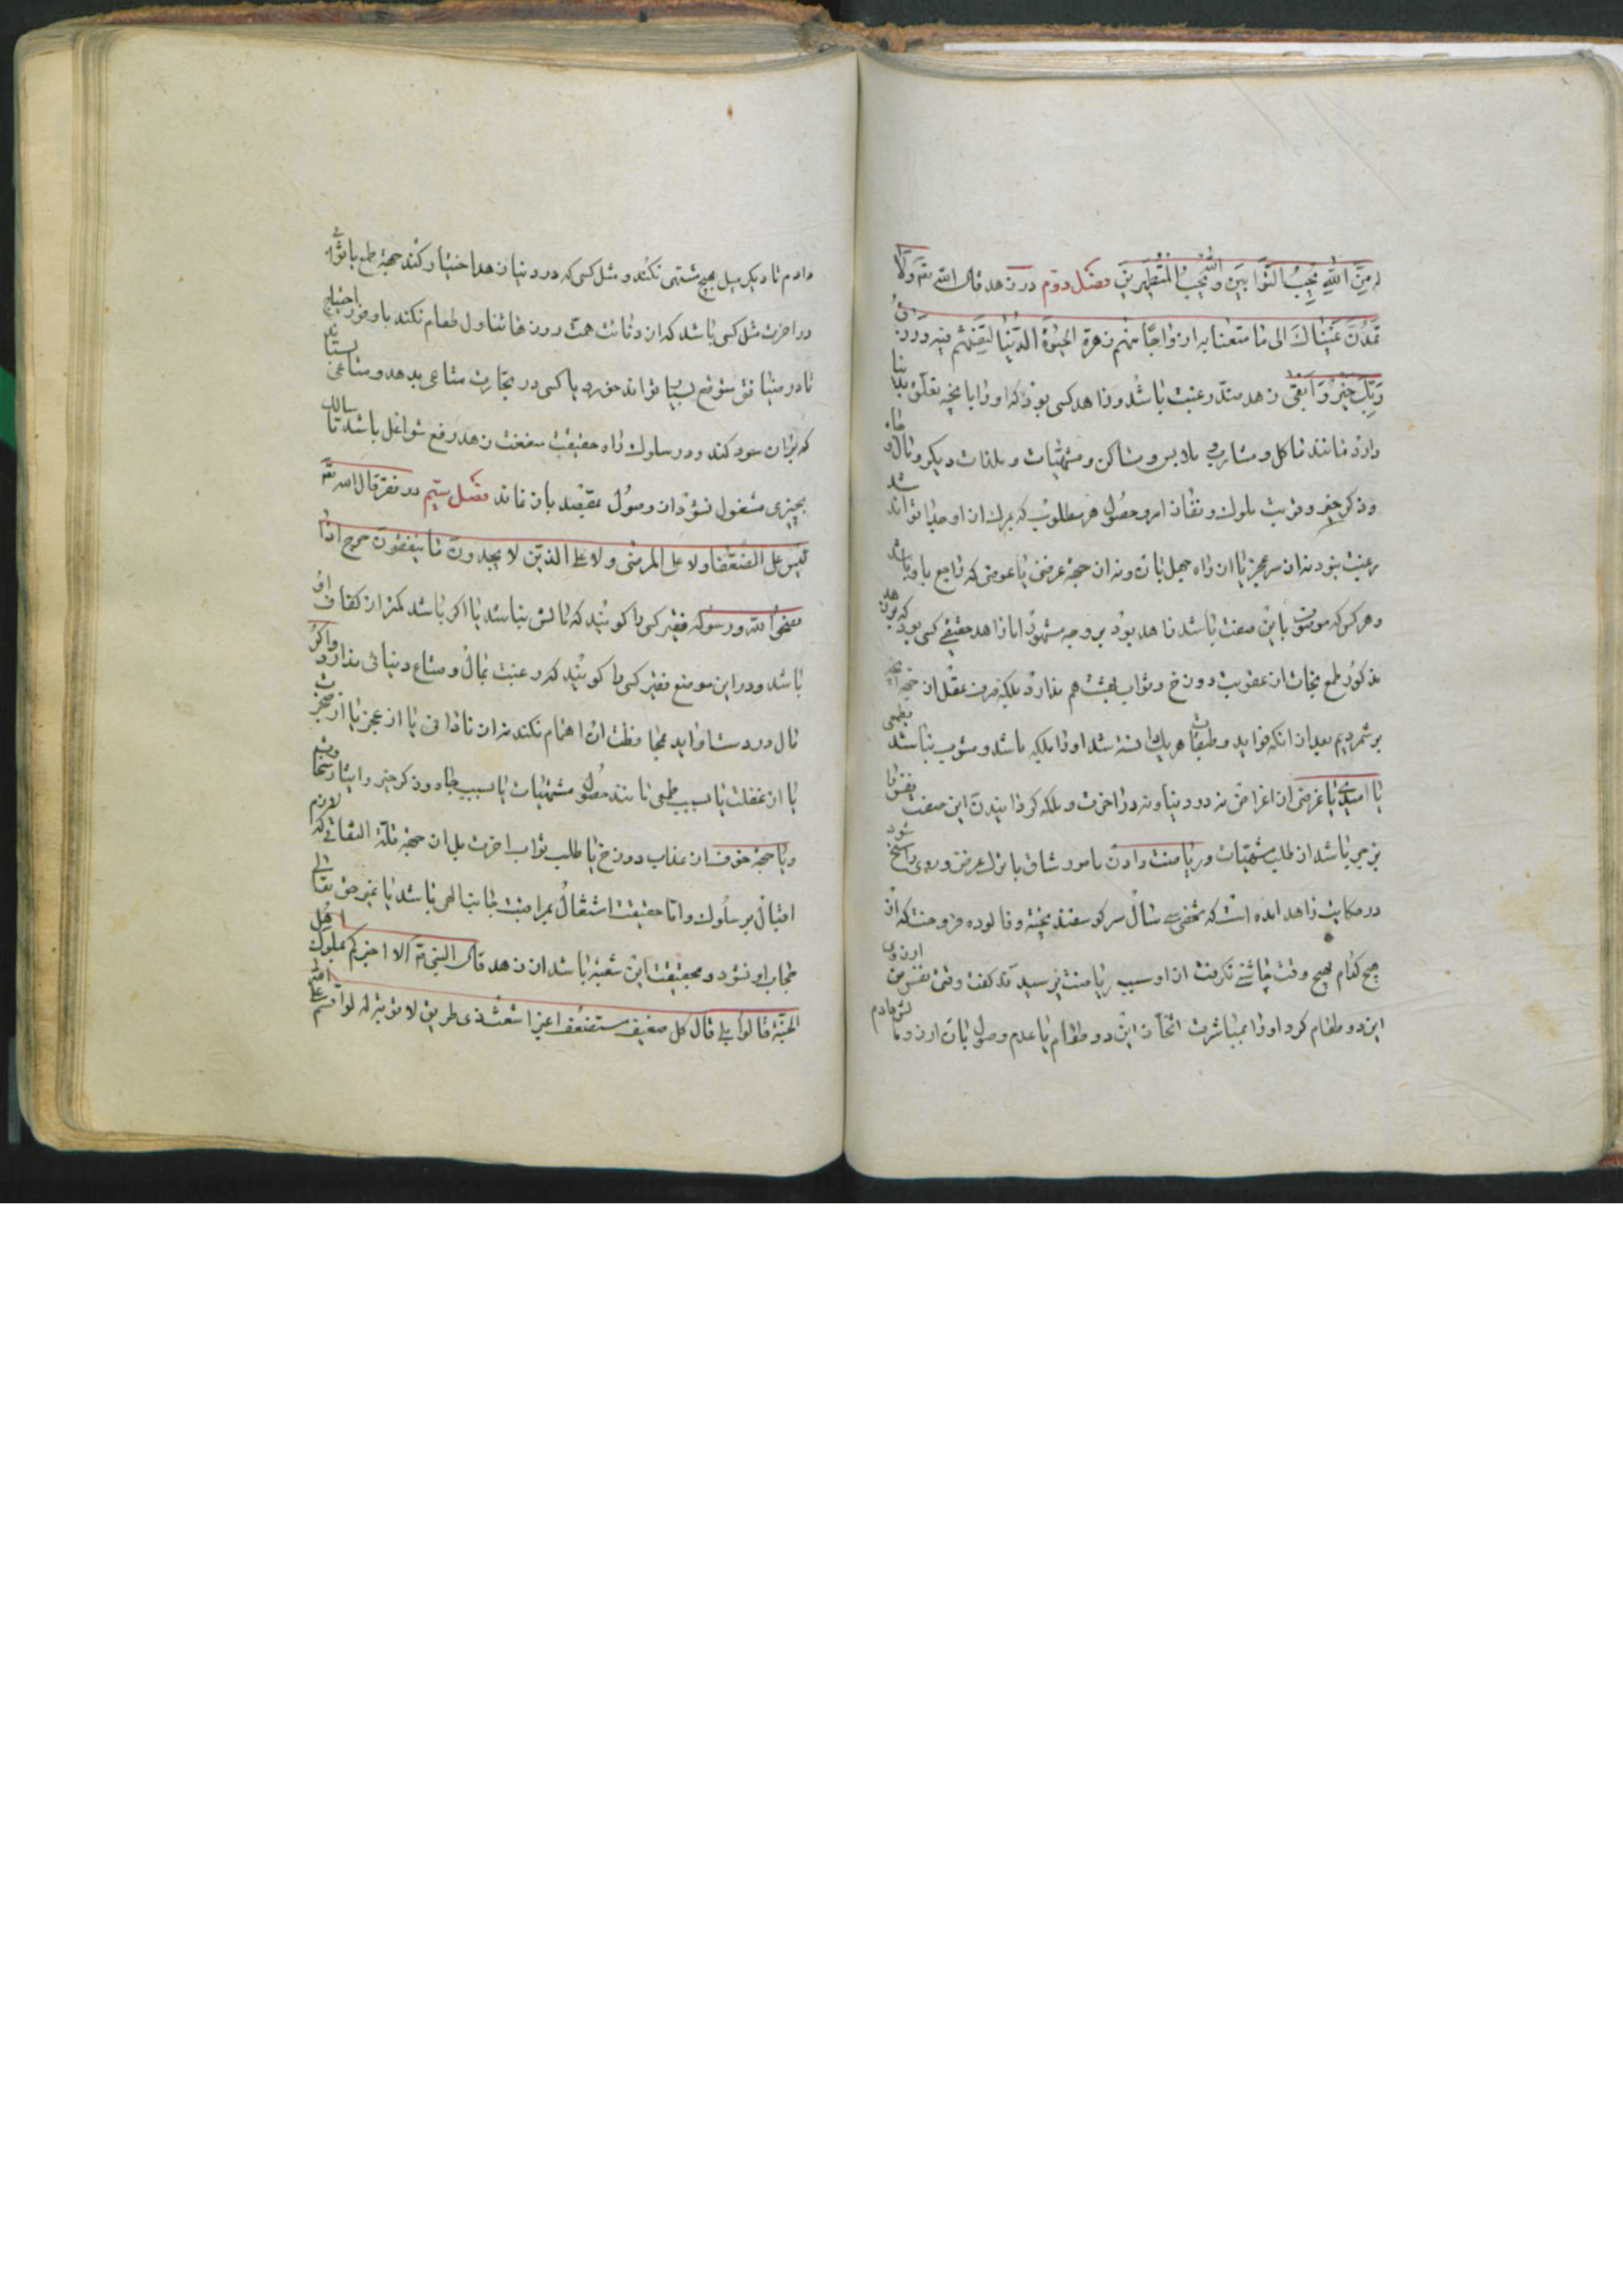 له من الله یحب التوابین و یحب المتطهرین فصل دوم در زهد قال الله تع ولا
تمدن عینیك الی ما متعنا به ازواجا منهم زهرة الحیوة الدنیا لنفتنهم فیه ورزق
ربك خیر وابقی زهد ضد رغبت باشد وزاهد کسی بود که او را بانچه تعلق بدنیا
دارد مانند ماکل و مشارب و ملابس و مساکن و مشتهیات و ملذات دیگر و مال و جاه
وذکر خیر و قربت ملوك و نفاذ امر و حصول هر مطلوب که بمرك از او جدا تواند شد
رغبت نبود نه از سر عجز یا از راه جهل بان و نه از جهة غرضی یا عوضی که راجع باو باشد
و هر کس که موصوف باین صفت باشد زاهد بود بر وجه مشهود اما زاهد حقیقی کسی بود که بزهد
مذکور طمع نجات از عقوبت دوزخ و ثواب بهشت هم ندارد بلکه صرف نفس از جمله آنچه
بر شمردیم بعد از انکه فواید و تبعات هر یك دانسته باشد او را ملکه باشد و مشوب نباشد بطمعی
یا امیدی یا غرضی از اغراض نه در دنیا و نه در اخرت و ملکه کردانیدن این صفت نفس را
بزجر باشد از طلب مشتهیات و ریاضت دادن بامور شاق تا ترك غرض در وی راسخ شود
در حکایت زهاد امده است که شخصی سی سال سر کوسفند پخته و فالوده فروخت که از
هیچ کدام هیچ وقت چاشنی نکرفت از او سبب ریاضت پرسیدند کفت وقتی نفس من ارزوی
این دو طعام کرد او را بمباشرت اتخاذ این دو طعام با عدم وصول بان ارزو مالش دادم
دادم تا دیکر میل بهیچ مشتهی نکند و مثل کسی که در دنیا زهد اختیار کند جهة طمع یا ثوابی
در اخرت مثل کسی باشد که از دنائت همت روزها تناول طعام نکند با وفور احتیاج
تا در ضیافتی متوقع بسیار تواند خورد یا کسی در تجارت متاعی بدهد و متاعی بستاند
که بران سود کند و در سلوك راه حقیقت منفعت زهد رفع شواغل باشد تا سالك
بچیزی مشغول نشود از وصول بمقصد باز نماند فصل سیم در فقر قال الله تع
لیس علی الضعفاء ولا علی المرضی ولا علی الذین لا یجدون ما ینفقون حرج اذا
نصحوا لله ورسوله فقیر کسی را کویند که مالش نباشد یا اکر باشد کمتر از کفاف او
باشد و در این موضع فقیر کسی را کویند که رغبت بمال و متاع دنیاوی ندارد واکر
مال در دست اواید بمحافظت ان اهتمام نکند نه از نادانی یا از عجز یا از ضجرت
یا از غفلت یا سبب طمعی مانند حصول مشتهیات یا سبب جاه و ذکر خیر و ایثار سخاوت
ویا جهة خوف از عذاب دوزخ یا طلب ثواب اخرت بل از جهة قلة التفاتی که لازم
اقبال بر سلوك و اما حقیقت اشتغال بمراقبت جانب الهی باشد تا غیر حق تعالی
حجاب او نشود و بحقیقت این شعبه باشد از زهد قال النبی ص الا اخبرکم بملوك اهل
الجنة قالوا بلی قال کل ضعیف مستضعف اغبر اشعث ذی طمرین لا یؤبه له لو اقسم علی الله